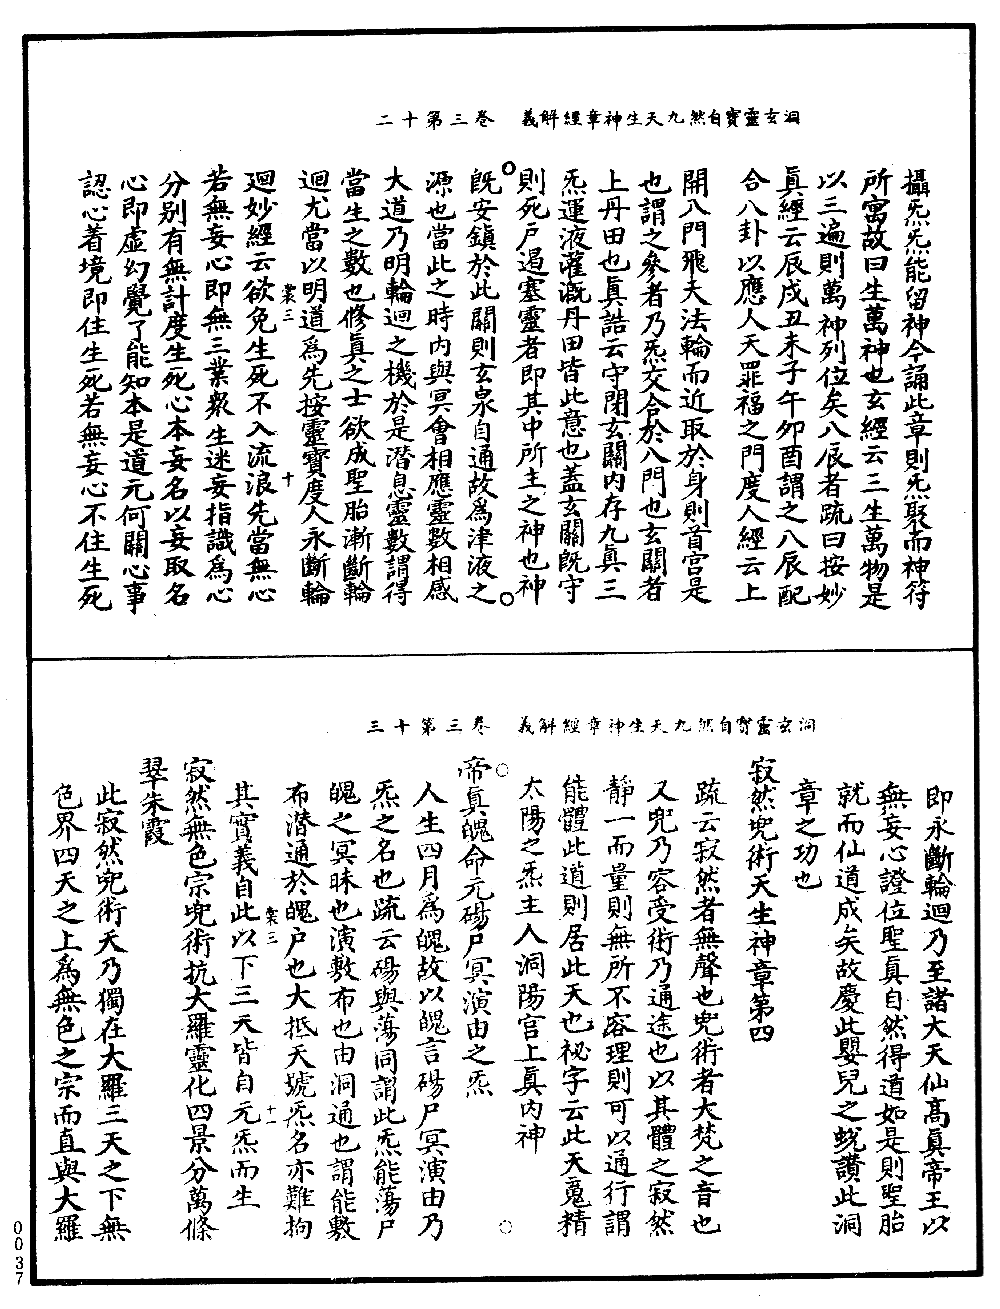 洞玄靈寶自然九天生神章經解義　卷三第十二
攝炁炁能留神今誦此章則炁聚而神符
所寓故曰生萬神也玄經云三生萬物是
以三遍則萬神列位矣八辰者疏曰按妙
眞經云辰戌丑未子午卯酉謂之八辰配
合八卦以應人天罪福之門度人經云上
開八門飛天法輪而近取於身則首宫是
也謂之參者乃炁交合於八門也玄關者
上丹田也眞誥云守閉玄關内存九眞三
炁運液灌溉丹田皆此意也蓋玄關旣守
則死戸遏塞靈者即其中所主之神也神
旣安鎮於此關則玄泉自通故爲津液之
源也當此之時内與冥會相應靈數相感
大道乃明輪迴之機於是潜息靈數謂得
當生之數也修眞之士欲成聖胎漸斷輪
迴尤當以明道爲先按靈寶度人永斷輪
業三　十
迴妙經云欲免生死不入流浪先當無心
若無妄心即無三業衆生迷妄指識爲心
分别有無計度生死心本妄名以妄取名
心即虚幻覺了能知本是道元何關心事
認心着境即住生死若無妄心不住生死
洞玄靈寶自然九天生神章經解義　卷三第十三
即永斷輪迴乃至諸大天仙高眞帝王以
無妄心證位聖眞自然得道如是則聖胎
就而仙道成矣故慶此嬰兒之蛻讚此洞
章之功也
寂然兜術天生神章第四
疏云寂然者無聲也兜術者大梵之音也
又兜乃容受術乃通途也以其體之寂然
靜一而量則無所不容理則可以通行謂
能體此道則居此天也祕字云此天魂精
太陽之炁主入洞陽宫上眞内神
帝眞魄命元碭尸冥演由之炁
人生四月爲魄故以魄言碭尸冥演由乃
炁之名也疏云碭與蕩同謂此炁能蕩尸
魄之冥昧也演敷布也由洞通也謂能敷
布潜通於魄戸也大抵天號炁名亦難拘
業三　十一
其實義自此以下三天皆自元炁而生
寂然無色宗兜術抗大羅靈化四景分萬條
翠朱霞
此寂然兜術天乃獨在大羅三天之下無
色界四天之上爲無色之宗而直與大羅
0037